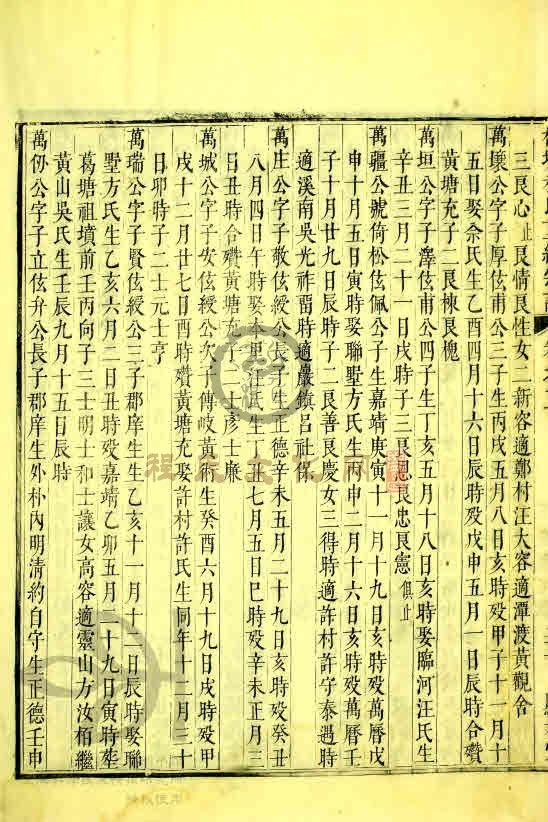 三艮心止艮情艮性女二新容適鄭村汪大容適潭渡黃觀舍
萬壤公字子厚伭甫公三子生丙戌五月八日亥時歿甲子十一月十
五日娶佘氏生乙酉四月十六日辰時歿戊申五月一日辰時合欑
黃塘充子二艮棟艮槐
萬垣公字子澤伭甫公四子生丁亥五月十八日亥時娶臨河汪氏生
辛丑三月二十一日戌時子三艮思艮忠艮憲俱止
萬疆公號倚松伭佩公子生嘉靖庚寅十一月十九日亥時歿萬曆戊
申十月五日寅時娶聯墅方氏生丙申二月十六日亥時歿萬曆壬
子十月廿九日辰時子二艮善艮慶女三得時適許村許守泰遇時
適溪南吳光祚留時適巖鎮呂社保
萬庄公字子敬伭綬公長子生正德辛未五月二十九日亥時歿癸丑
八月四日午時娶本里汪氏生丁丑七月五日巳時歿辛未正月三
日丑時合欑黃塘充子二士彥士廉
萬城公字子安伭綬公次子傳岐黃生癸酉六月十九日戌時歿甲
戌十二月廿七日酉時欑黃塘充娶許村許氏生同年十二月三十
日卯時子二士元士亨
萬瑞公字子賢伭綬公三子郡庠生生乙亥十一月十二日辰時娶聯
墅方氏生乙亥六月二日丑時歿嘉靖乙卯五月二十九日寅時塟
葛塘祖墳前壬丙向子三士明士和士讓女高容適靈山方汝栢繼
黃山吳氏生壬辰九月十五日辰時
萬仞公字子立伭弁公長子郡庠生外朴內明清約自守生正德壬申